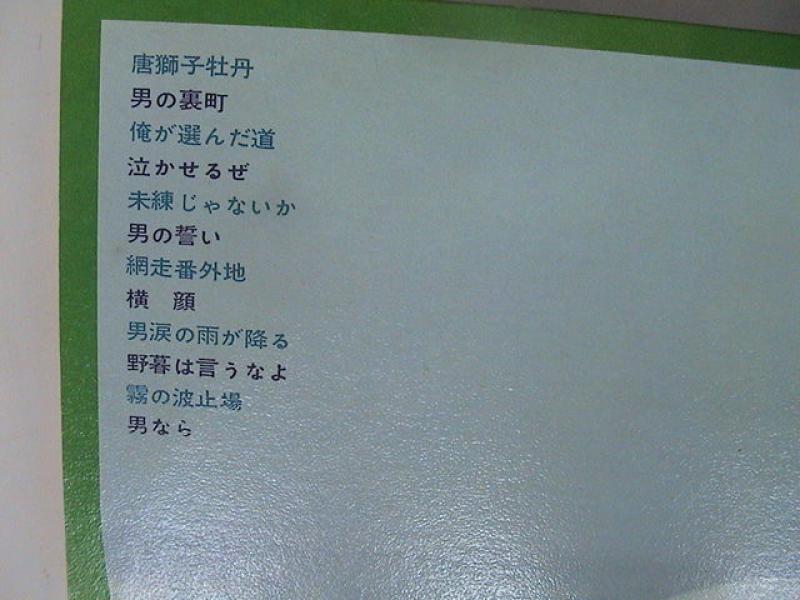 唐獅子牡丹
男の裏町
俺が選んだ道
泣かせるぜ
未練じゃないか
男の誓い
網走番外地
横　顔
男涙の雨が降る
野暮は言うなよ
霧の波止場
男なら